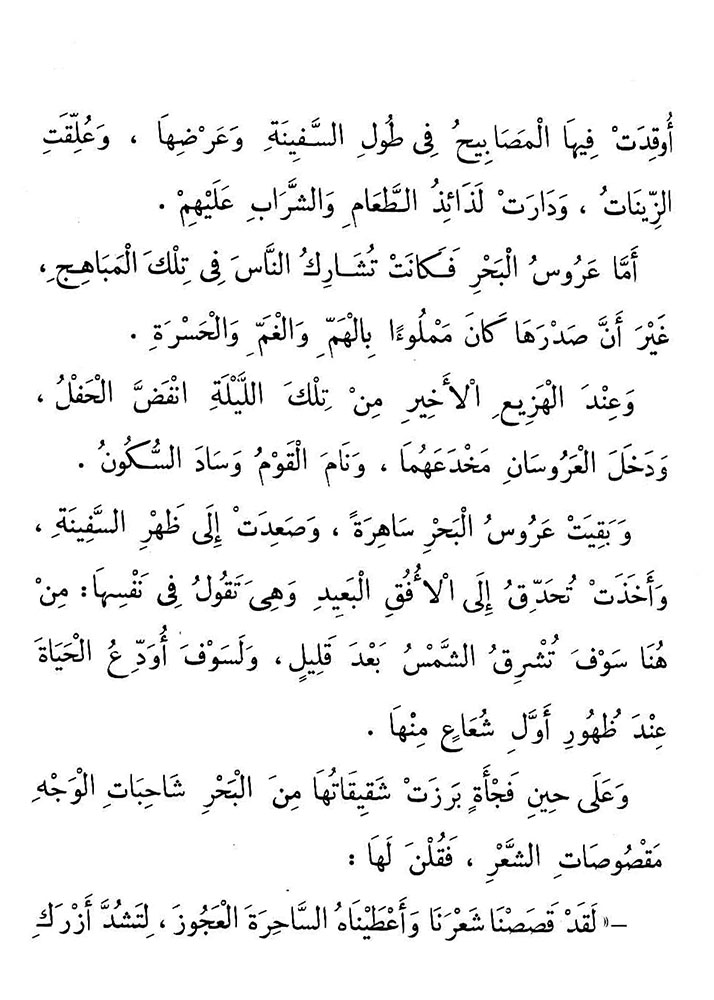 أُوقِدَتْ فِيهَا الْمَصَابِيحُ فِى طُولِ السَّفِينَةِ وَعَرْضِهَا ، وَعُلِّقَتِ
الزِّينَاتُ ، وَدَارَتْ لَذَائِذُ الطَّعَامِ وَالشَّرَابِ عَلَيْهِمْ .
أَمَّا عَرُوسُ الْبَحْرِ فَكَانَتْ تُشَارِكُ النَّاسَ فِى تِلْكَ الْمَبَاهِجِ ،
غَيْرَ أَنَّ صَدْرَهَا كَانَ مَمْلُوءًا بِالْهَمِّ وَالْغَمِّ وَالْحَسْرَةِ .
وَعِنْدَ الْهَزِيعِ الْأَخِيرِ مِنْ تِلْكَ اللَّيْلَةِ انْفَضَّ الْحَفْلُ ،
وَدَخَلَ الْعَرُوسَانِ مَخْدَعَهُمَا ، وَنَامَ الْقَوْمُ وَسَادَ السُّكُونُ .
وَبَقِيَتْ عَرُوسُ الْبَحْرِ سَاهِرَةً ، وَصَعِدَتْ إِلَى ظَهْرِ السَّفِينَةِ ،
وَأَخَذَتْ تُحَدِّقُ إِلَى الْأُفُقِ الْبَعِيدِ وَهِىَ تَقُولُ فِى نَفْسِهَا: مِنْ
هُنَا سَوْفَ تُشْرِقُ الشَّمْسُ بَعْدَ قَلِيلٍ، وَلَسَوْفَ أُوَدِّعُ الْحَيَاةَ
عِنْدَ ظُهُورِ أَوَّلِ شُعَاعٍ مِنْهَا .
وَعَلَى حِينِ فَجْأَةٍ بَرَزَتْ شَقِيقَاتُهَا مِنَ الْبَحْرِ شَاحِبَاتِ الْوَجْهِ
مَقْصُوصَاتِ الشَّعْرِ ، فَقُلْنَ لَهَا :
–«لَقَدْ قَصَصْنَا شَعْرَنَا وَأَعْطَيْنَاهُ السَّاحِرَةَ الْعَجُوزَ ، لِتَشُدَّ أَزْرَكِ